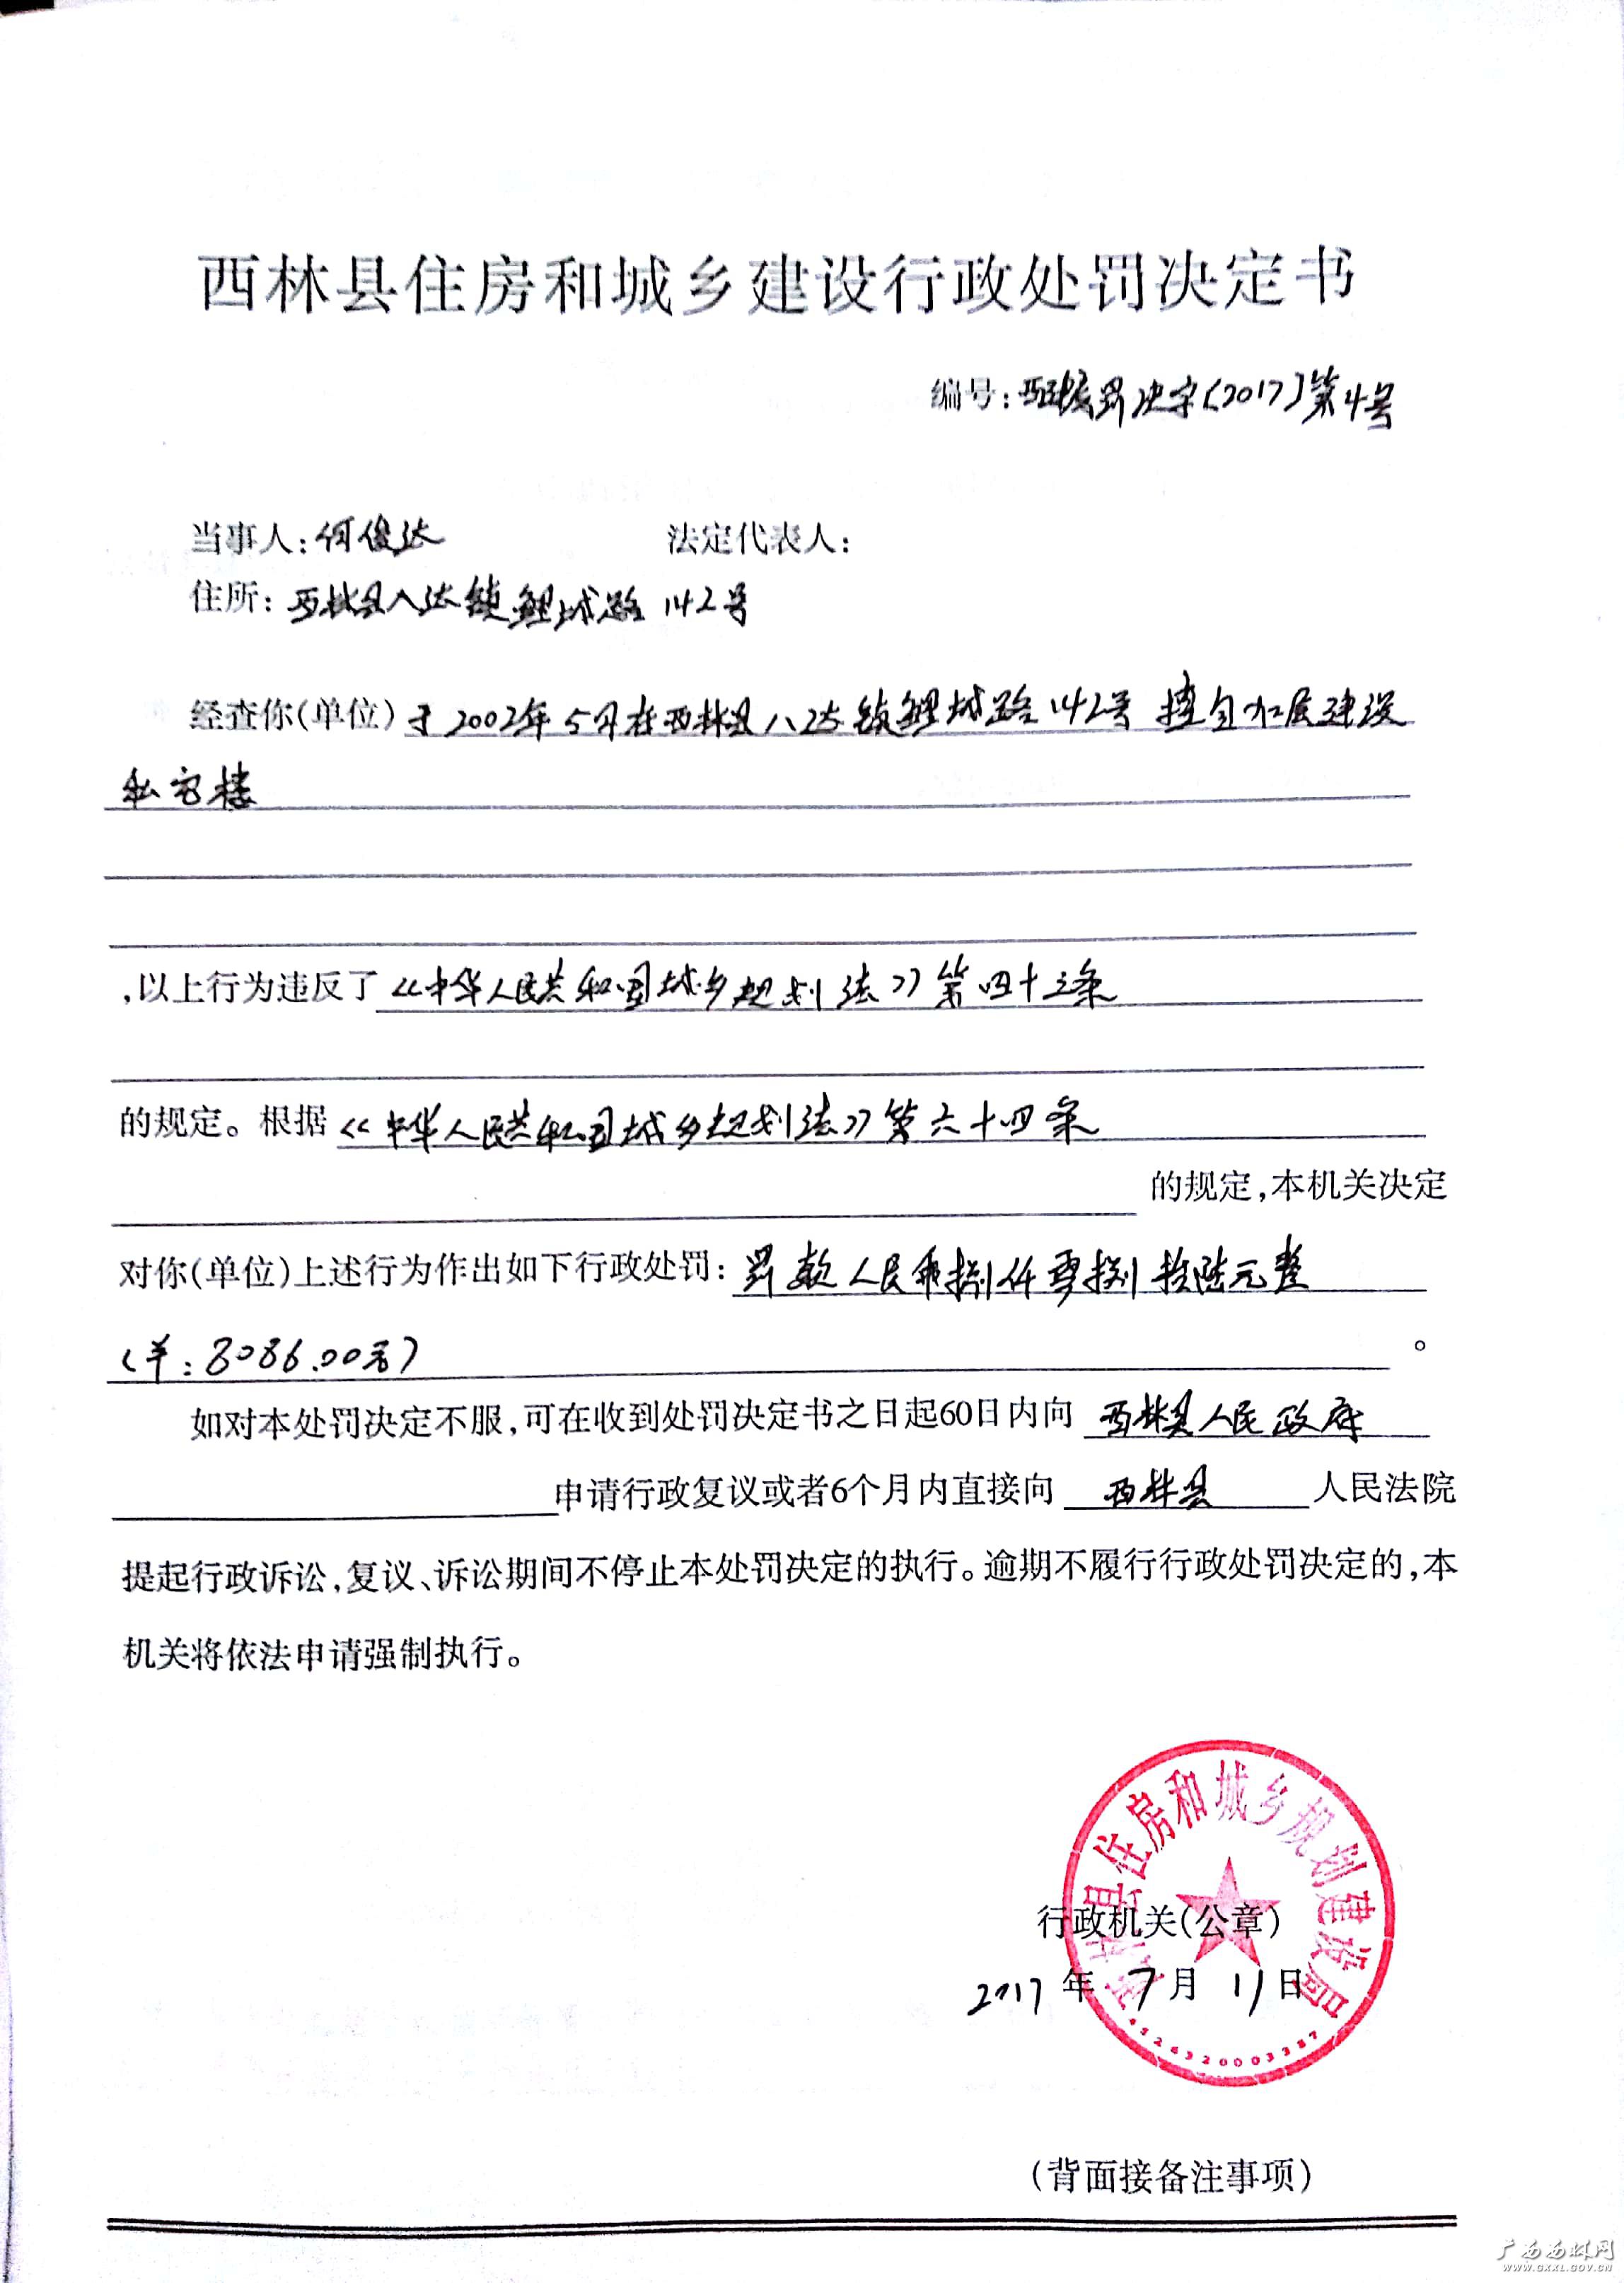 西林县住房和城乡建设行政处罚决定书
编号：西林房罚决字〔2017〕第4号
当事人：何俊达 法定代表人：
住所：西林县八达镇鲤城路142号
经查你（单位）于2002年5月在西林县八达镇鲤城路142号擅自加层建设
私宅楼
，以上行为违反了《中华人民共和国城乡规划法》第四十三条
的规定。根据《中华人民共和国城乡规划法》第六十四条
的规定，本机关决定
对你（单位）上述行为作出如下行政处罚：罚款人民币捌仟零捌拾陆元整
（￥：8086.00元）。
如对本处罚决定不服，可在收到处罚决定书之日起60日内向西林县人民政府
申请行政复议或者6个月内直接向西林县人民法院
提起行政诉讼，复议、诉讼期间不停止本处罚决定的执行。逾期不履行行政处罚决定的，本
机关将依法申请强制执行。
西林县住房和城乡规划建设局
行政机关（公章）
2017年7月11日
4524320003387
（背面接备注事项）
广西西林网
WWW.GXXL.GOV.CN